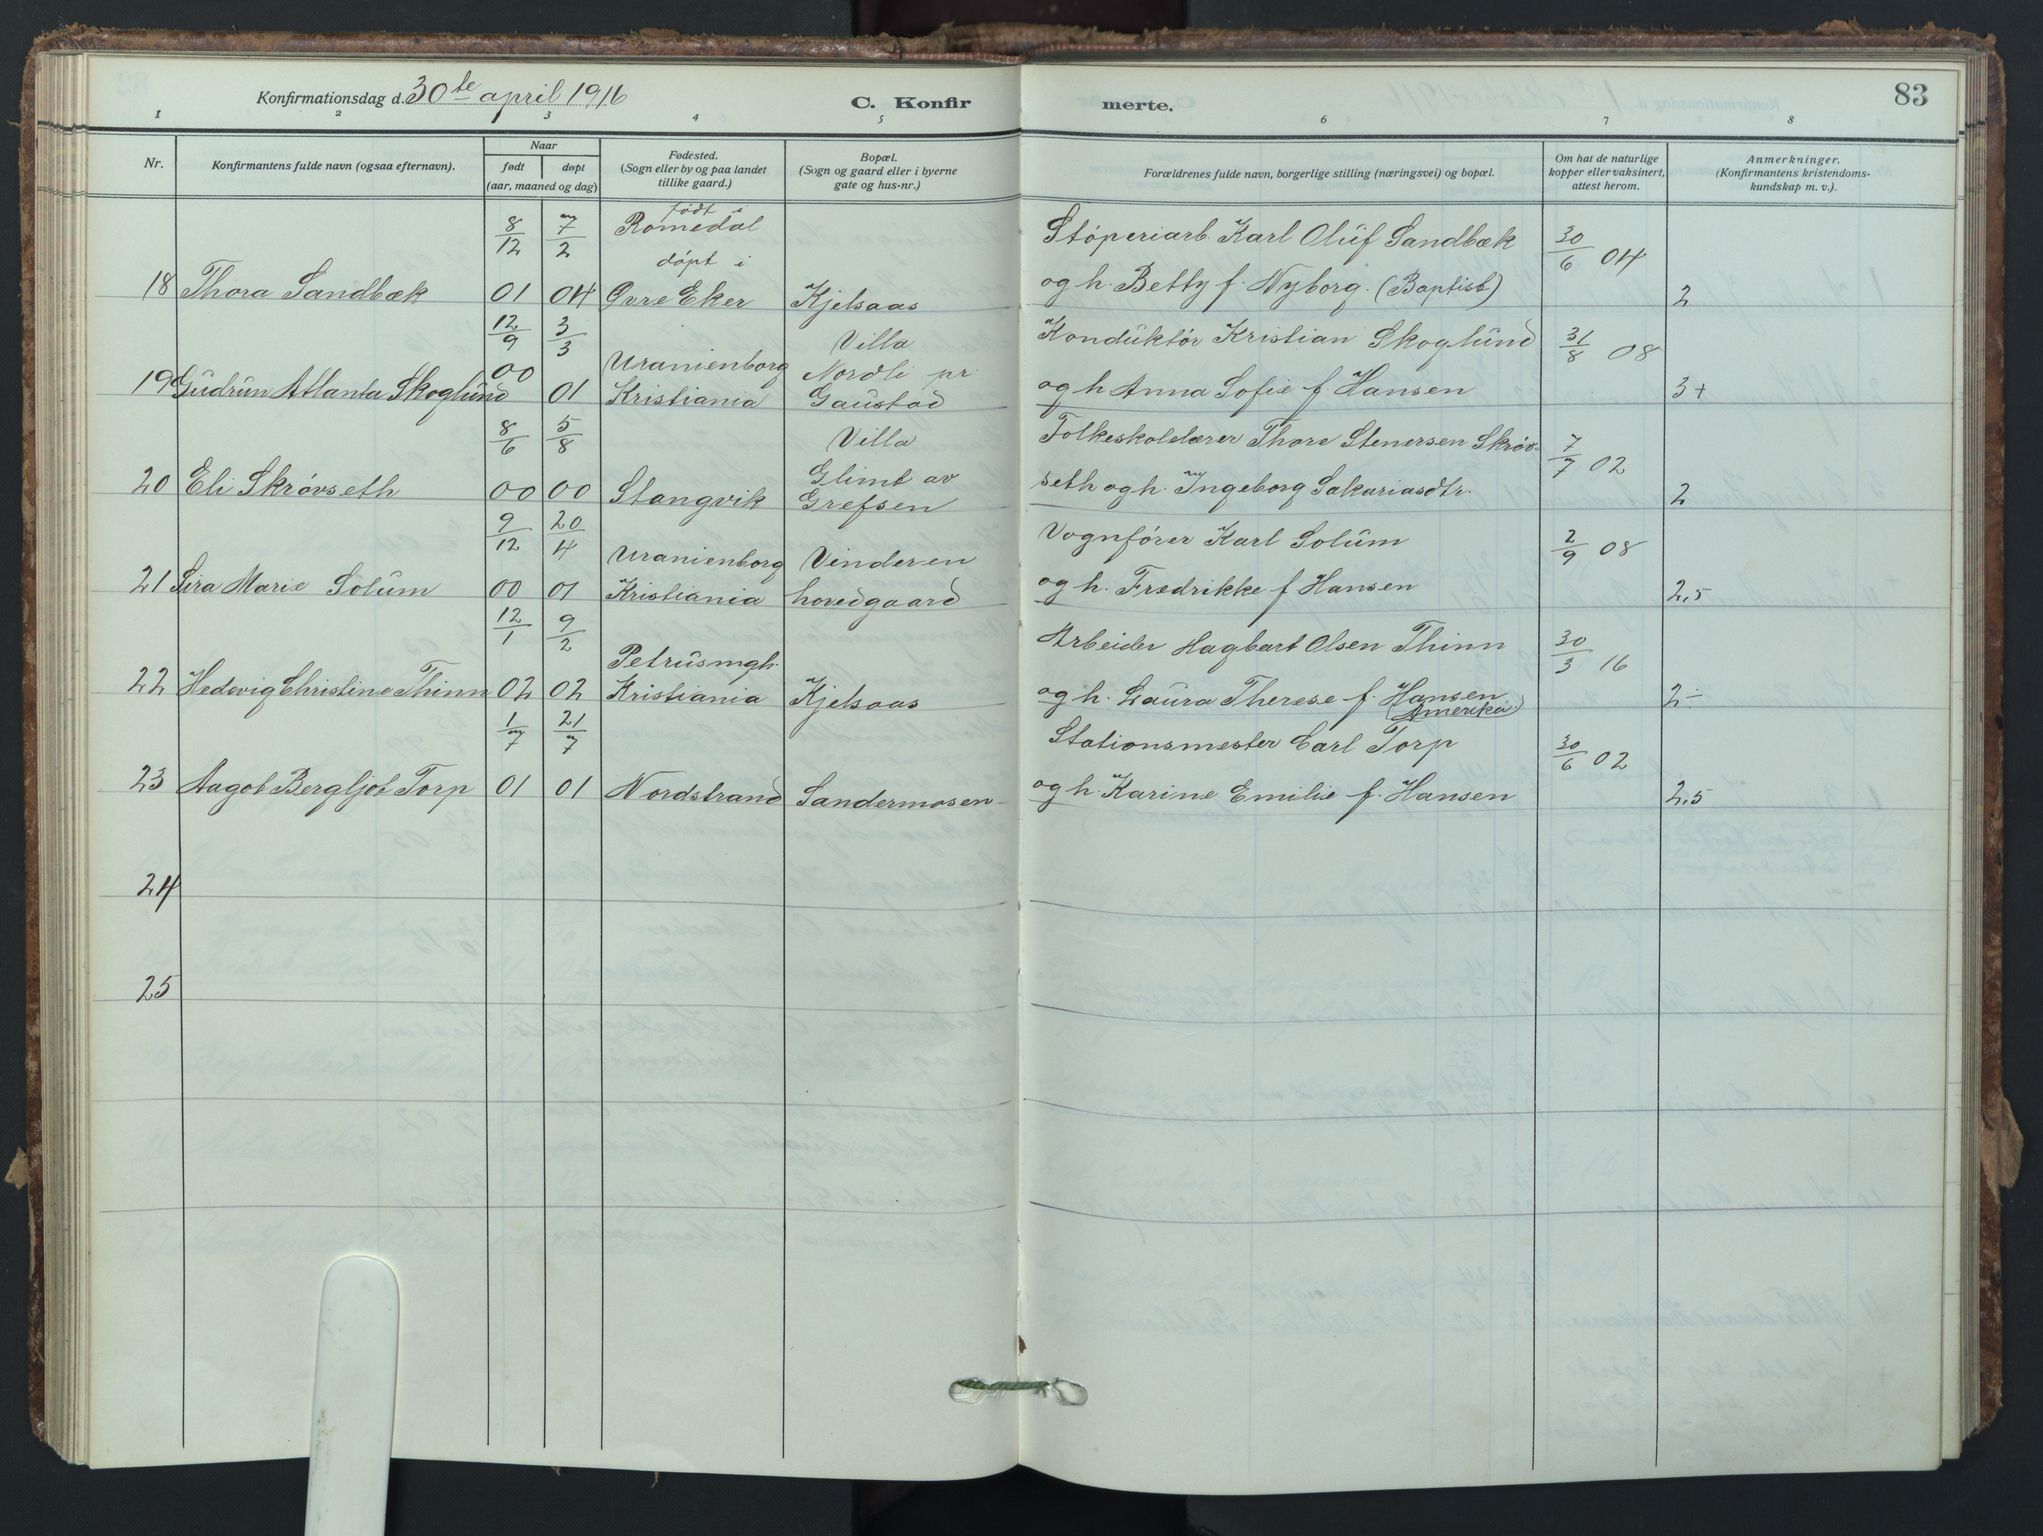 Konfirmationsdag d. 30te april 1916
C. Konfirmerte.
83
1 2 3 4 5 6 7 8
Nr.
Konfirmantens fulde navn (ogsaa efternavn).
Naar
født døpt
(aar, maaned og dag)
Fødested.
(Sogn eller by og paa landet
tillike gaard.)
Bopæl.
(Sogn og gaard eller i byerne
gate og hus-nr.)
Forældrenes fulde navn, borgerlige stilling (næringsvei) og bopæl.
Om hat de naturlige
kopper eller vaksinert,
attest herom.
Anmerkninger.
(Konfirmantens kristendoms-
kundskap m. v.).
18 Thora Sandbæk
8/12 01
7/2 04
født i
Romedal
døpt i
Øvre Eker
Kjelsaas
Støperiarb. Karl Oluf Sandbæk
og h. Betty f. Nyborg. (Baptist)
30/6 04
2
19 Gudrun Atlanta Skoglund
12/9 00
3/3 01
Uranienborg
Kristiania
Villa
Nordli pr.
Gaustad
Konduktør Kristian Skoglund
og h Anna Sofie f. Hansen
31/8 08
3+
20 Eli Skrøvseth
8/6 00
5/8 00
Stangvik
Villa
Glimt av
Grefsen
Folkeskolelærer Thore Stenersen Skrøv-
seth og h. Ingeborg Sakariasdtr.
7/7 02
2
21 Sira Marie Solum
9/12 00
20/4 01
Uranienborg
Kristiania
Vinderen
hovedgaard
Vognfører Karl Solum
og h. Fredrikke f Hansen
2/9 08
2,5
22 Hedevig Christine Thinn
12/1 02
9/2 02
Petrusmgh.
Kristiania
Kjelsaas
Arbeider Hagbart Olsen Thinn
og h. Laura Therese f. Hansen
(Amerika)
30/3 16
2÷
23 Aagot Bergljot Torp
1/7 01
21/7 01
Nordstrand
Sandermosen
Stationsmester Carl Torp
og h. Karine Emilie f. Hansen
30/6 02
2,5
24
25